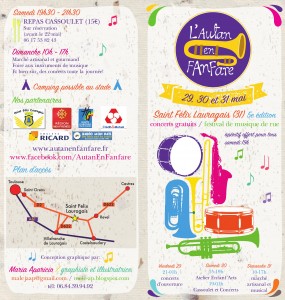 Samedi 19h30 - 21h30
REPAS CASSOULET (15€)
Sur réservation
(avant le 22 mai)
06.17.53.82.43
Dimanche 10h - 17h
Marché artisanal et gourmand
Foire aux instruments de musique
Et bien sûr, des concerts toute la journée!
Camping possible au stade
Nos partenaires
RICARD
www.autanenfanfare.fr
www.facebook.com/AutanEnFanfare
Plan d'accès
Toulouse
Castres
Saint Orens
Revel
Saint Félix
Lauragais
Villefranche
de Lauragais
Castelnaudary
Conception graphique par:
Maria Aparicio / graphiste et illustratrice
L'Autan
en
FANfare
29, 30 et 31 mai
Saint Félix Lauragais (31) 5e édition
concerts gratuits / festival de musique de rue
apéritif offert pour tous
samedi 30 à 19h
Vendredi 29
Samedi 30
Dimanche 31
concerts
Cassoulet et Concerts